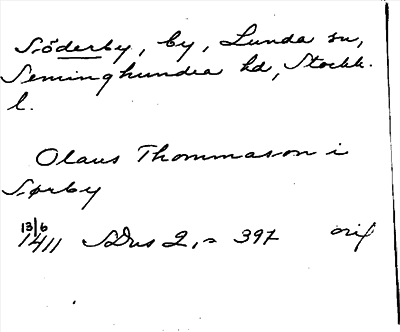 Söderby, by, Lunda sn,
Seminghundra hd, Stockh.
l.
Olaus Thommason i
Sørby
13/6
1411 SDns 2, s 397 orig